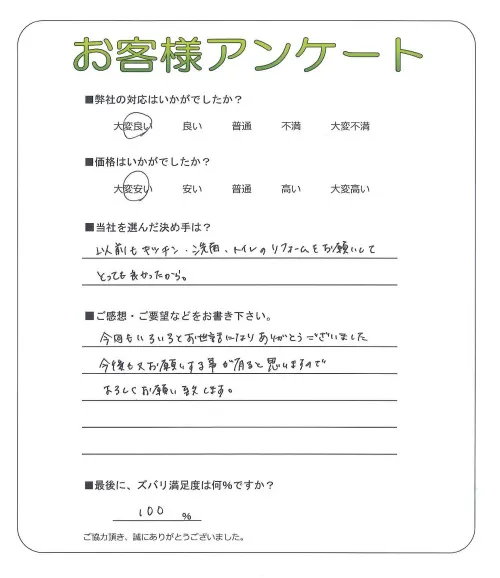 お客様アンケート
■弊社の対応はいかがでしたか？
大変良い 良い 普通 不満 大変不満
■価格はいかがでしたか？
大変安い 安い 普通 高い 大変高い
■当社を選んだ決め手は？
以前もキッチン・洗面、トイレのリフォームをお願いして
とっても良かったから。
■ご感想・ご要望などをお書き下さい。
今回もいろいろとお世話になりありがとうございました
今後も又お願いする事が有ると思いますので
よろしくお願い致します。
■最後に、ズバリ満足度は何%ですか？
100 %
ご協力頂き、誠にありがとうございました。